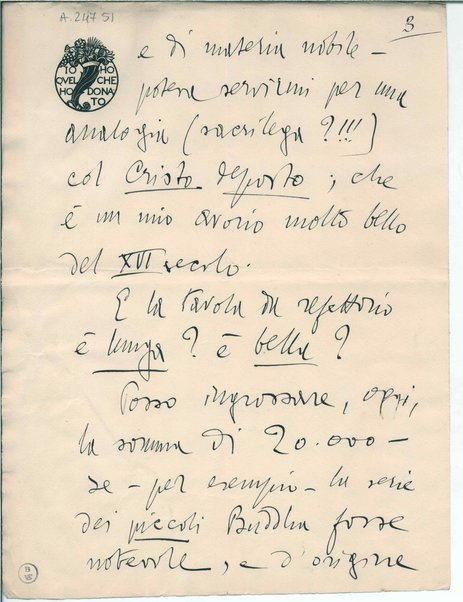 A.24751
3
IO HO
QVEL CHE
HO DONA
TO
e di materia nobile –
poteva servirmi per una
analogia (sacrilega?!!!)
col Cristo deposto ; che
è un mio avorio molto bello
del XVI secolo.
E la tavola da refettorio
è lunga ? è bella ?
Posso ingrossare, oggi,
la somma di 20.000 –
se – per esempio – la serie
dei piccoli Buddha fosse
notevole, e d'origine
B